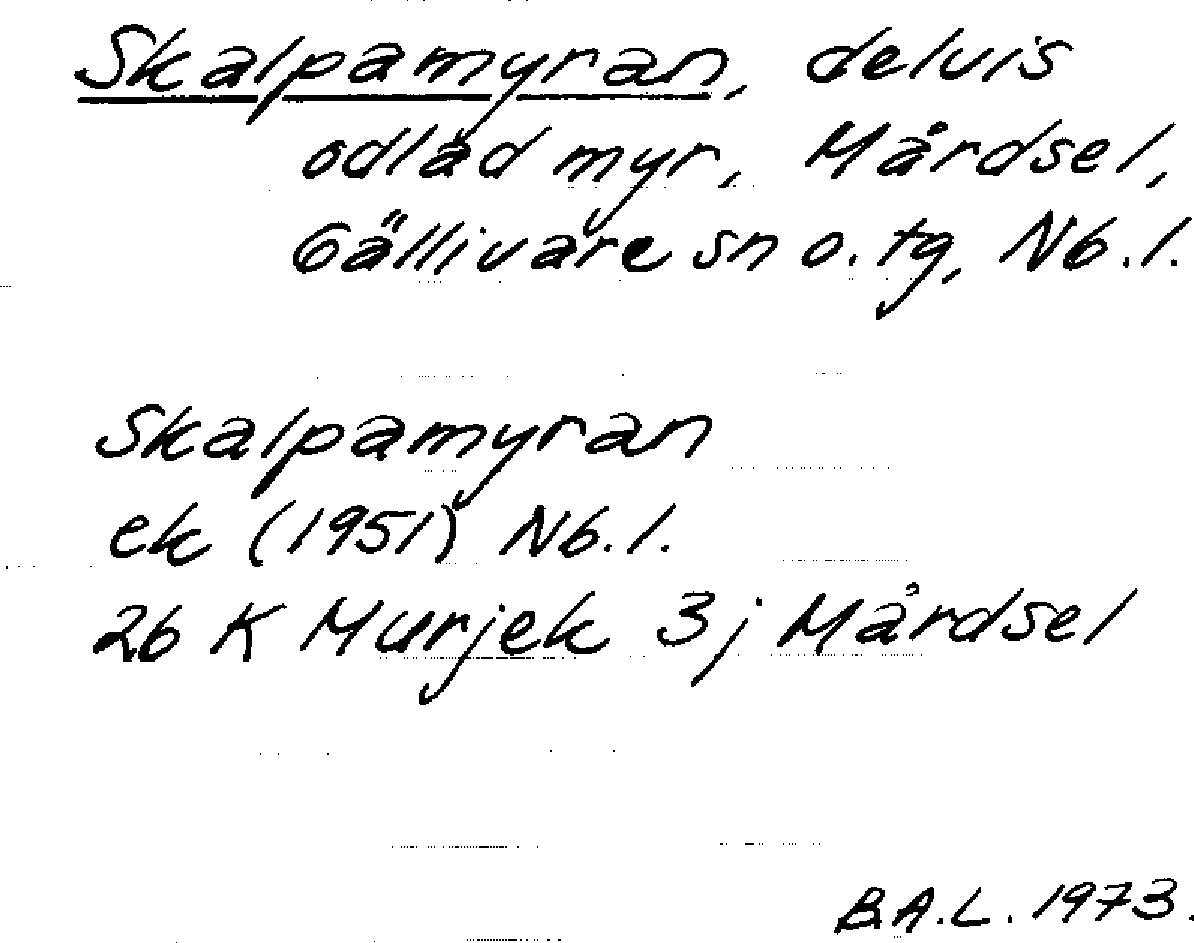 Skalpamyran, delvis
odlad myr, Mårdsel,
Gällivare sn o. tg, Nb.l.
Skalpamyran
ek (1951) Nb.l.
26 K Murjek 3j Mårdsel
B.A.L. 1973.